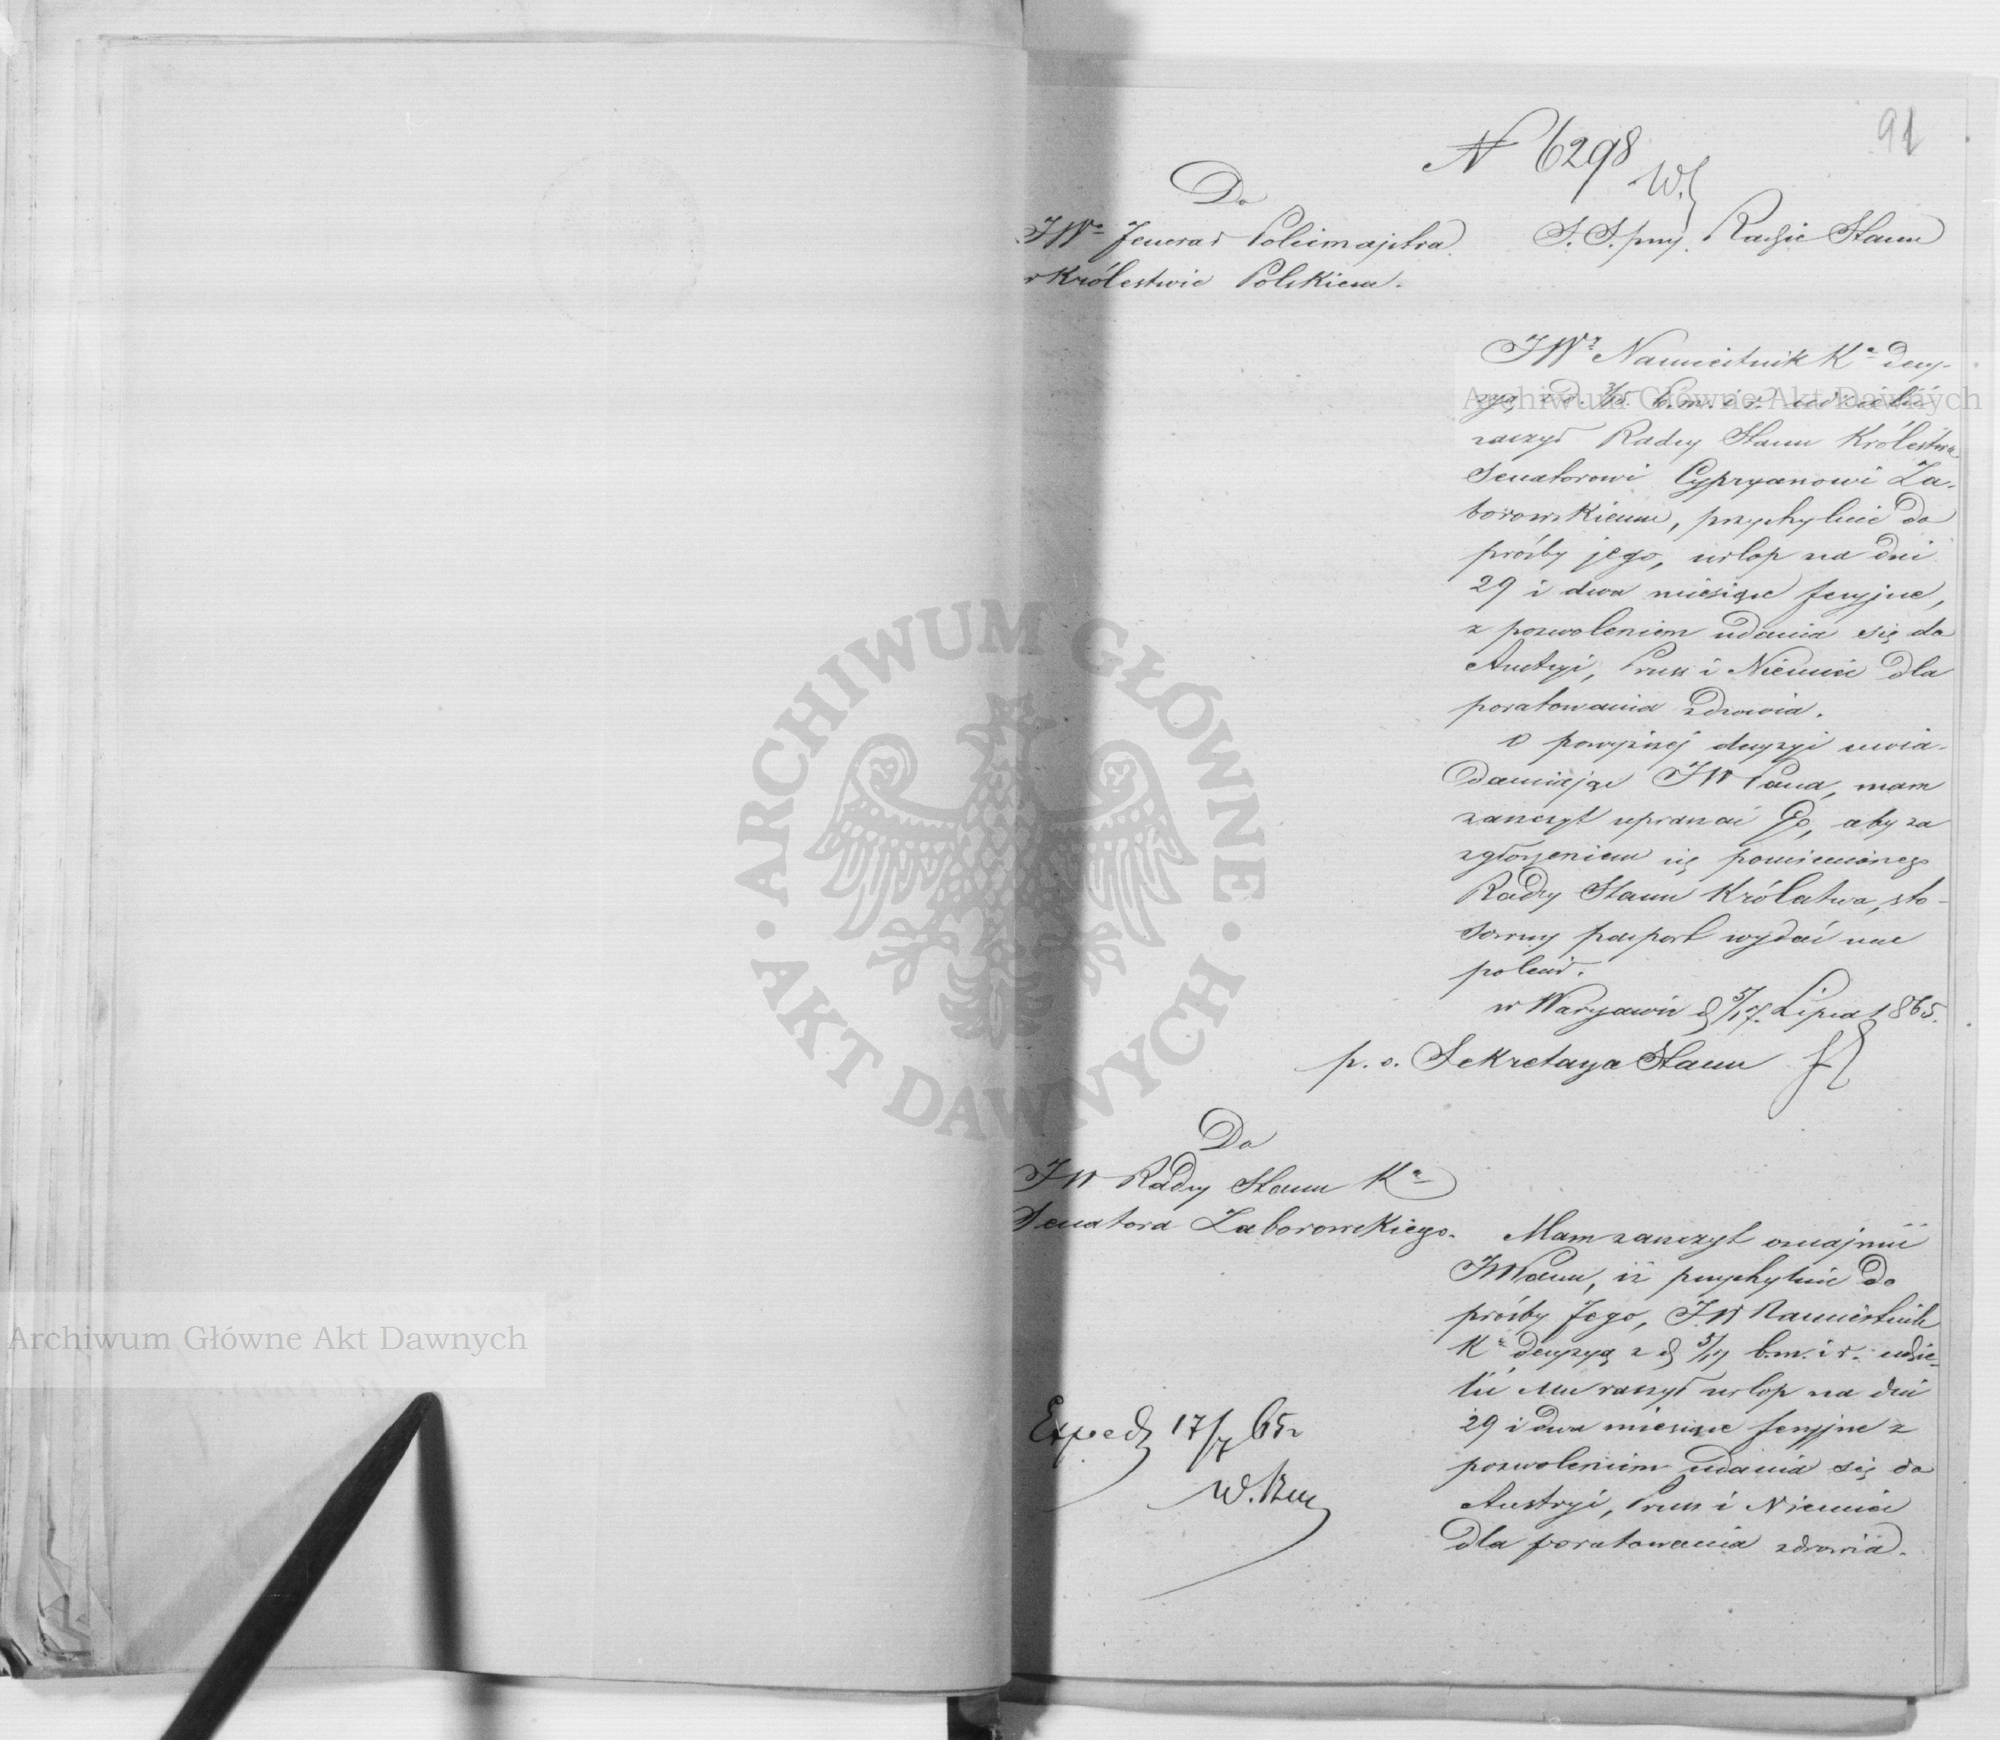 91
N 6298
Do
JWo Jenerał Policmajstra
w Królestwie Polskiem.
S. S. przy Radzie Stanu
JWy Namiestnik Ka decy-
zyą z d. b. m. i r. udzielić
raczył Radcy Stanu Królestwa
Senatorowi Cypryanowi Za-
borowskiemu, przychylnie do
prośby jego, urlop na dni
29 i dwa miesiące feryjne,
z pozwoleniem udania się do
Austryi, Pruss i Niemiec dla
poratowania zdrowia.
O powyższej decyzyi uwia-
damiając JW Pana, mam
zaszczyt upraszać Go, aby za
zgłoszeniem się pomienionego
Radcy Stanu Królestwa, sto-
sowny pasport wydać mu
polecił.
w Warszawie d 5/17 Lipca 1865.
p. o. Sekretarza Stanu
Do
JW Radcy Stanu Ka
Senatora Zaborowskiego.
Mam zaszczyt oznajmić
JWPanu, iż przychylnie do
prośby Jego, JW Namiestnik
Ka decyzyą z d 5/17 b.m. i r. udzie-
lić Mu raczył urlop na dni
29 i dwa miesiące feryjne z
pozwoleniem udania się do
Austryi, Pruss i Niemiec
dla poratowania zdrowia.
Exped 17/7 65r
W.
ARCHIWUM GŁÓWNE AKT DAWNYCH
Archiwum Główne Akt Dawnych
Archiwum Główne Akt Dawnych